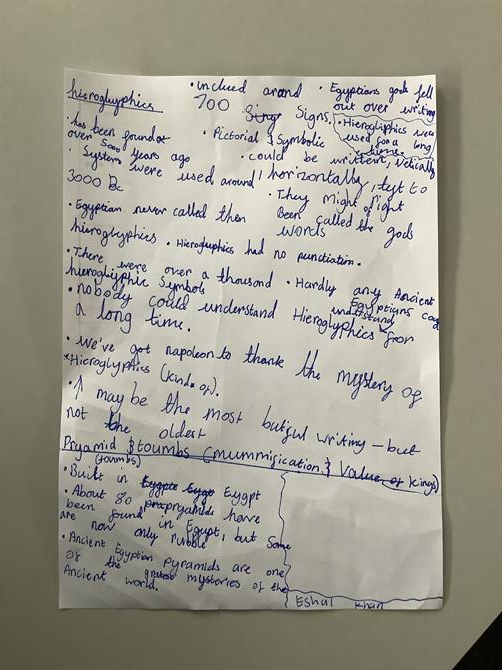 hieroglyphics
• inclued around 700 Signs.
• Egyptians gods fell out over writing
• Hierogliphics were used for a long time.
• has been found over 5000 years ago
• Pictorial & Symbolic
• could be writtent, vertically / horizontally, left to right
• Systems were used around 3000 Bc
• They might of Been called the gods words
• Egyptian never called then hieroglyphics
• Hierogluphics had no punctiation.
• There were over a thousand hieroglyphic Symbols
• Hardly any Ancient Egyptians could understand
• nobody could understand Hieroglyphics for a long time.
• We've got napoleon to thank the mystery of
Hieroglyphics (kinda of).
• may be the most butiful writing - but
not the oldest
Pryamid & toumbs (mummification & value of kings)
(toumbs)
• Built in Eygpt
• About 80 pryamids have
been found in Egypt, but Some
are now only rubble
• Ancient Egyption pyramids are one
of the greatest mysteries of the
Ancient world.
Eshal Khan